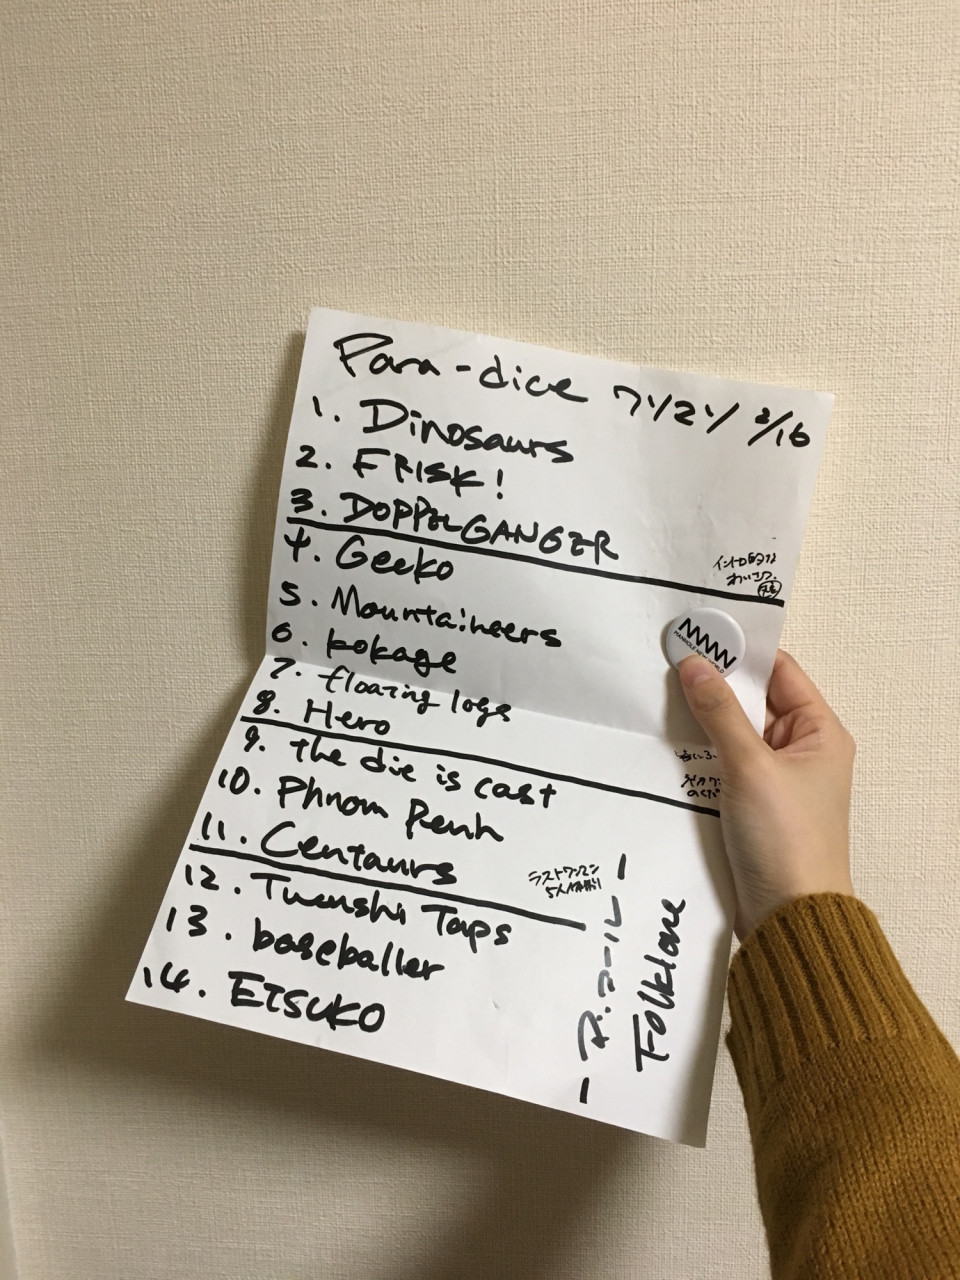 Para-dice ワンマン 2/16
1. Dinosaurs
2. FRISK!
3. DOPPELGANGER
イントロ的な
あいさつ。
4. Gecko
5. Mountaineers
6. kokage
7. floating logs
8. Hero
9. the die is cast
10. Phnom Penh
11. Centaurs
ラストワンマン
12. Tuenshi Taps
13. baseballer
14. ETSUKO
— アンコール —
Folklore
MANHOLE NEW WORLD